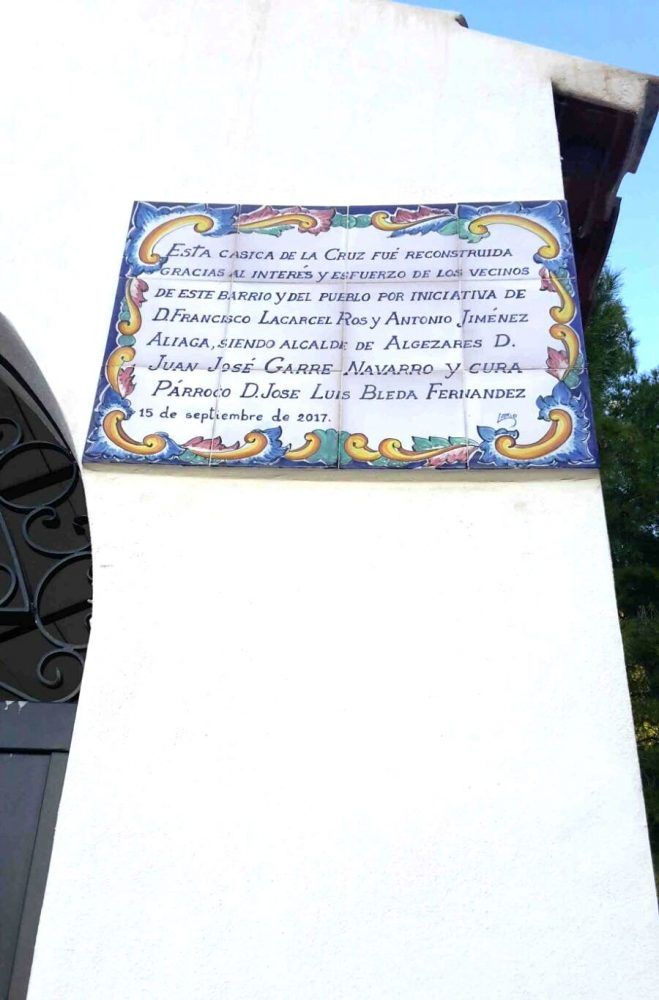 Esta casica de la Cruz fué reconstruida
gracias al interés y esfuerzo de los vecinos
de este barrio y del pueblo por iniciativa de
D. Francisco Lacarcel Ros y Antonio Jiménez
Aliaga, siendo alcalde de Algezares D.
Juan José Garre Navarro y cura
Párroco D. Jose Luis Bleda Fernandez
15 de septiembre de 2017.